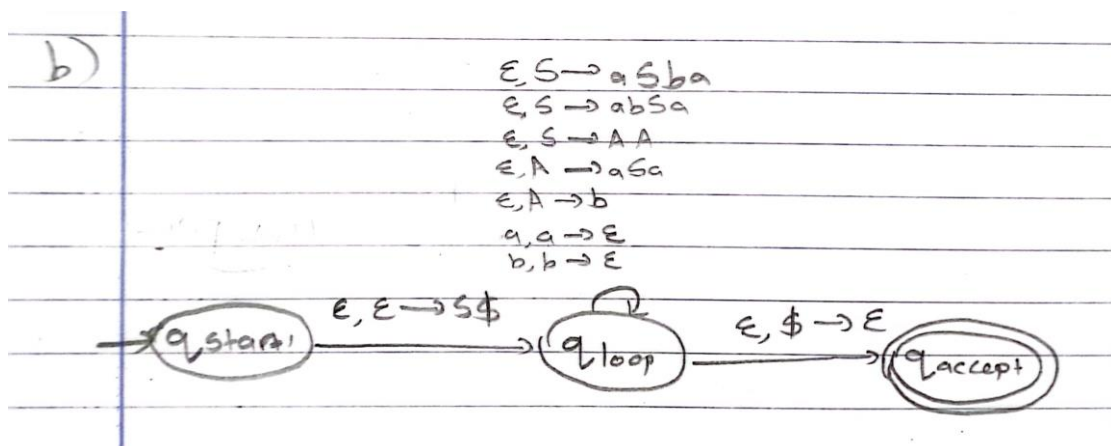 b)
ε, S → aSba
ε, S → abSa
ε, S → AA
ε, A → aSa
ε, A → b
a, a → ε
b, b → ε
ε, ε → S$
ε, $ → ε
q start
q loop
q accept